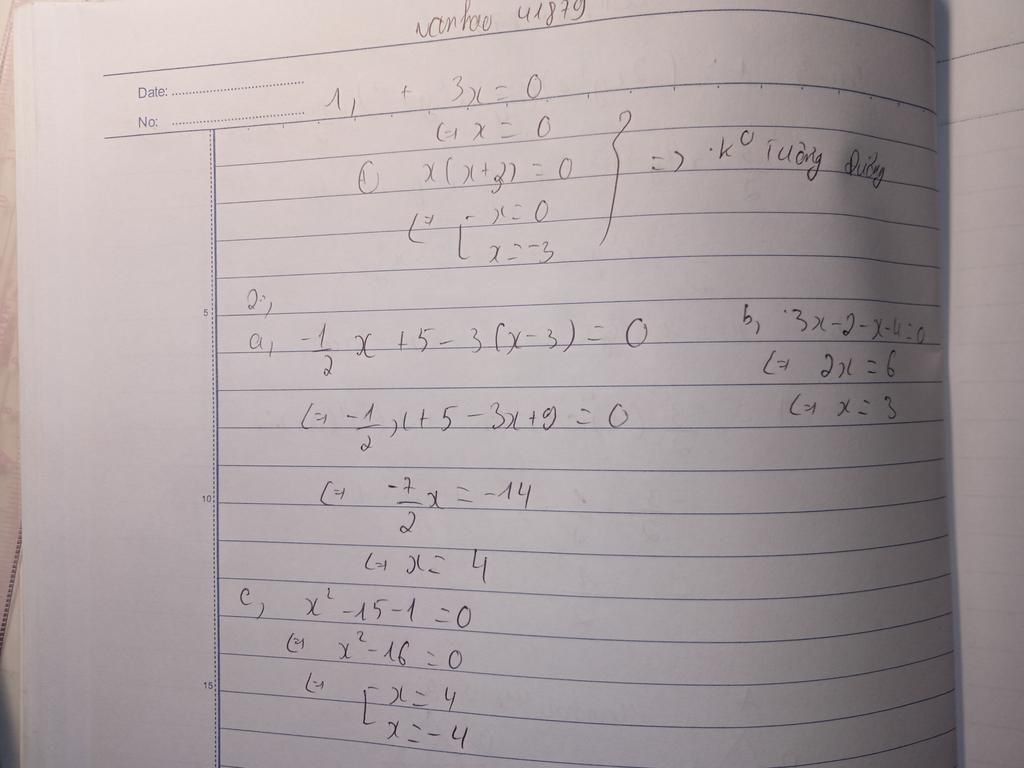 vanhao 41879
Date:
No:
1, + 3x = 0
(=> x = 0
x(x+3) = 0
(=> [ x = 0
x = -3
} => k° Tương đương
2,
a, -1/2 x + 5 - 3(x-3) = 0
(=> -1/2 x + 5 - 3x + 9 = 0
(=> -7/2 x = -14
(=> x = 4
b, 3x-2-x-4=0
(=> 2x = 6
(=> x = 3
c, x² -15-1 = 0
(=> x² -16 = 0
(=> [ x = 4
x = -4
5
10
15